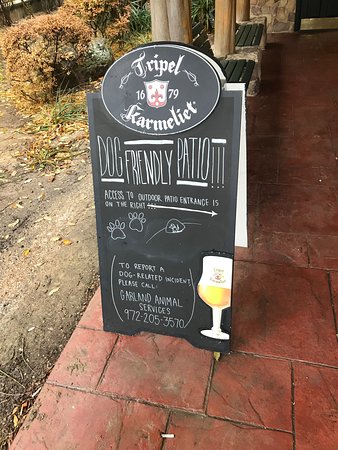 Tripel
1679
Karmeliet
DOG FRIENDLY PATIO!!!
ACCESS TO OUTDOOR PATIO ENTRANCE IS
ON THE RIGHT
TO REPORT A
DOG-RELATED INCIDENT,
PLEASE CALL:
GARLAND ANIMAL
SERVICES
972-205-3570